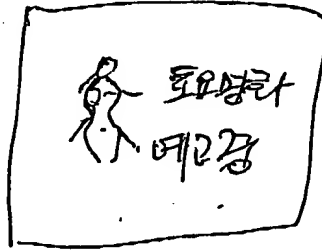 토요명화
예고중